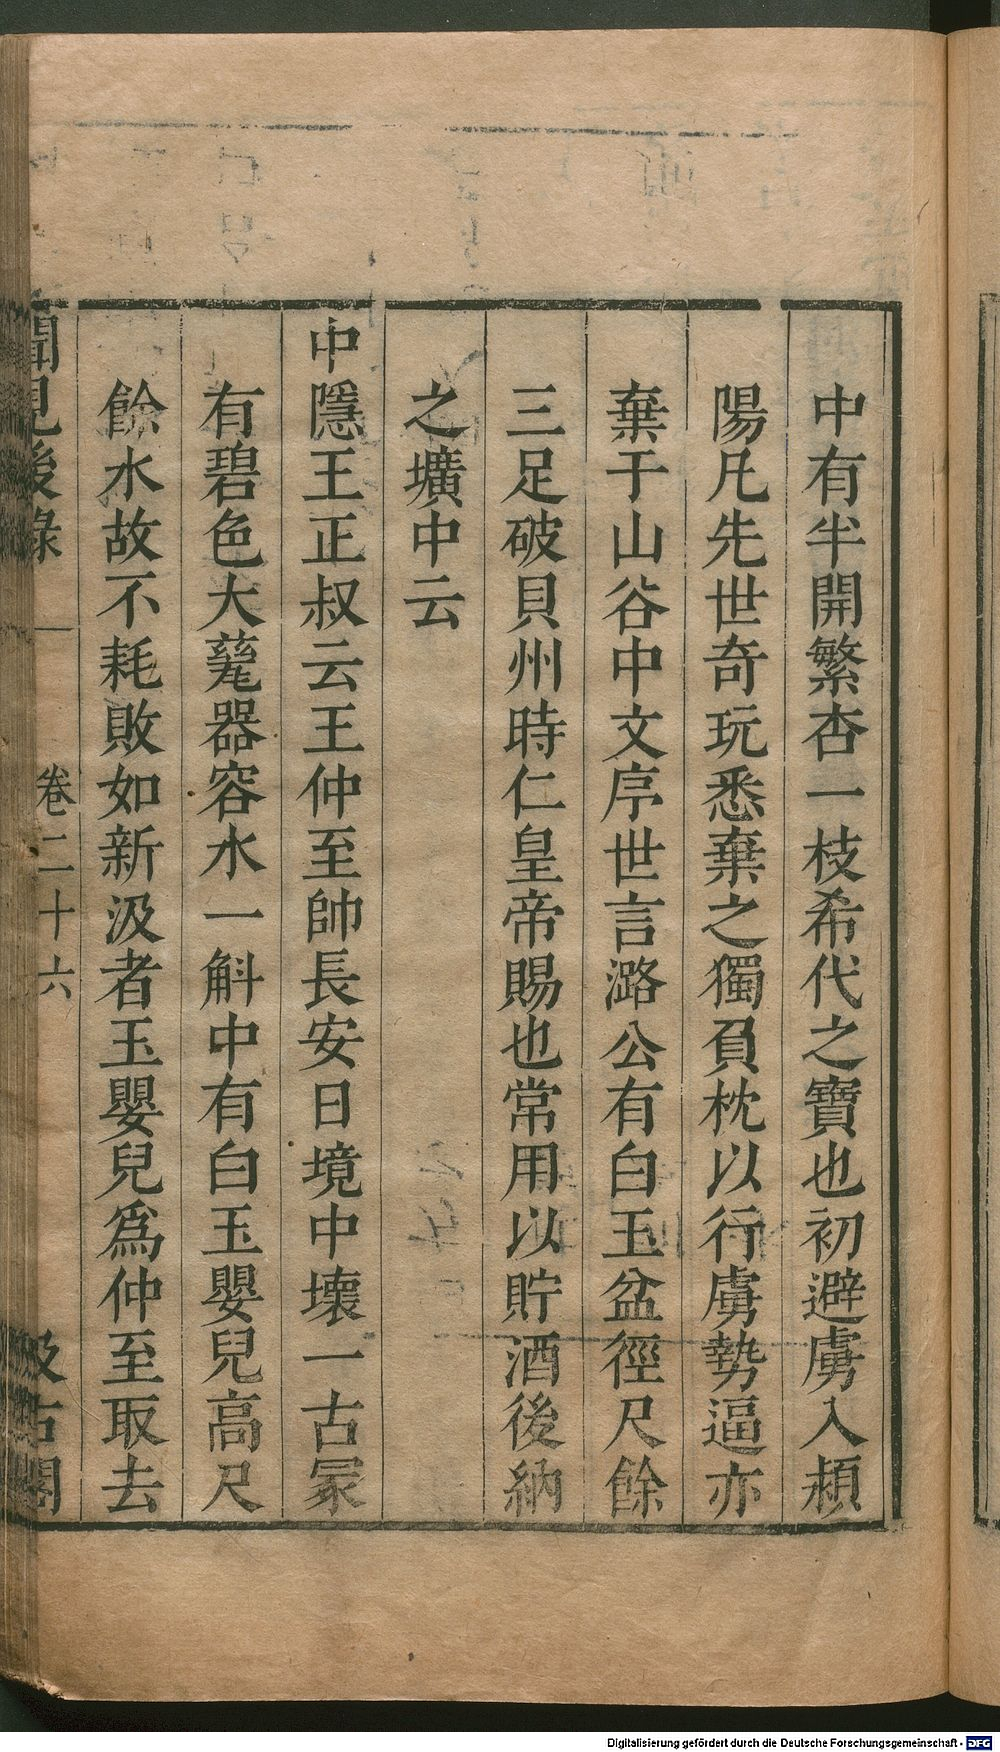 中有半開繁杏一枝希代之寶也初避虜入潁
陽凡先世奇玩悉棄之獨負枕以行虜勢逼亦
棄于山谷中文序世言潞公有白玉盆徑尺餘
三足破貝州時仁皇帝賜也常用以貯酒後納
之壙中云
中隱王正叔云王仲至帥長安日境中壞一古冢
有碧色大甆器容水一斛中有白玉嬰兒高尺
餘水故不耗敗如新汲者玉嬰兒爲仲至取去
聞見後錄
卷二十六
汲古閣
Digitalisierung gefördert durch die Deutsche Forschungsgemeinschaft - DFG